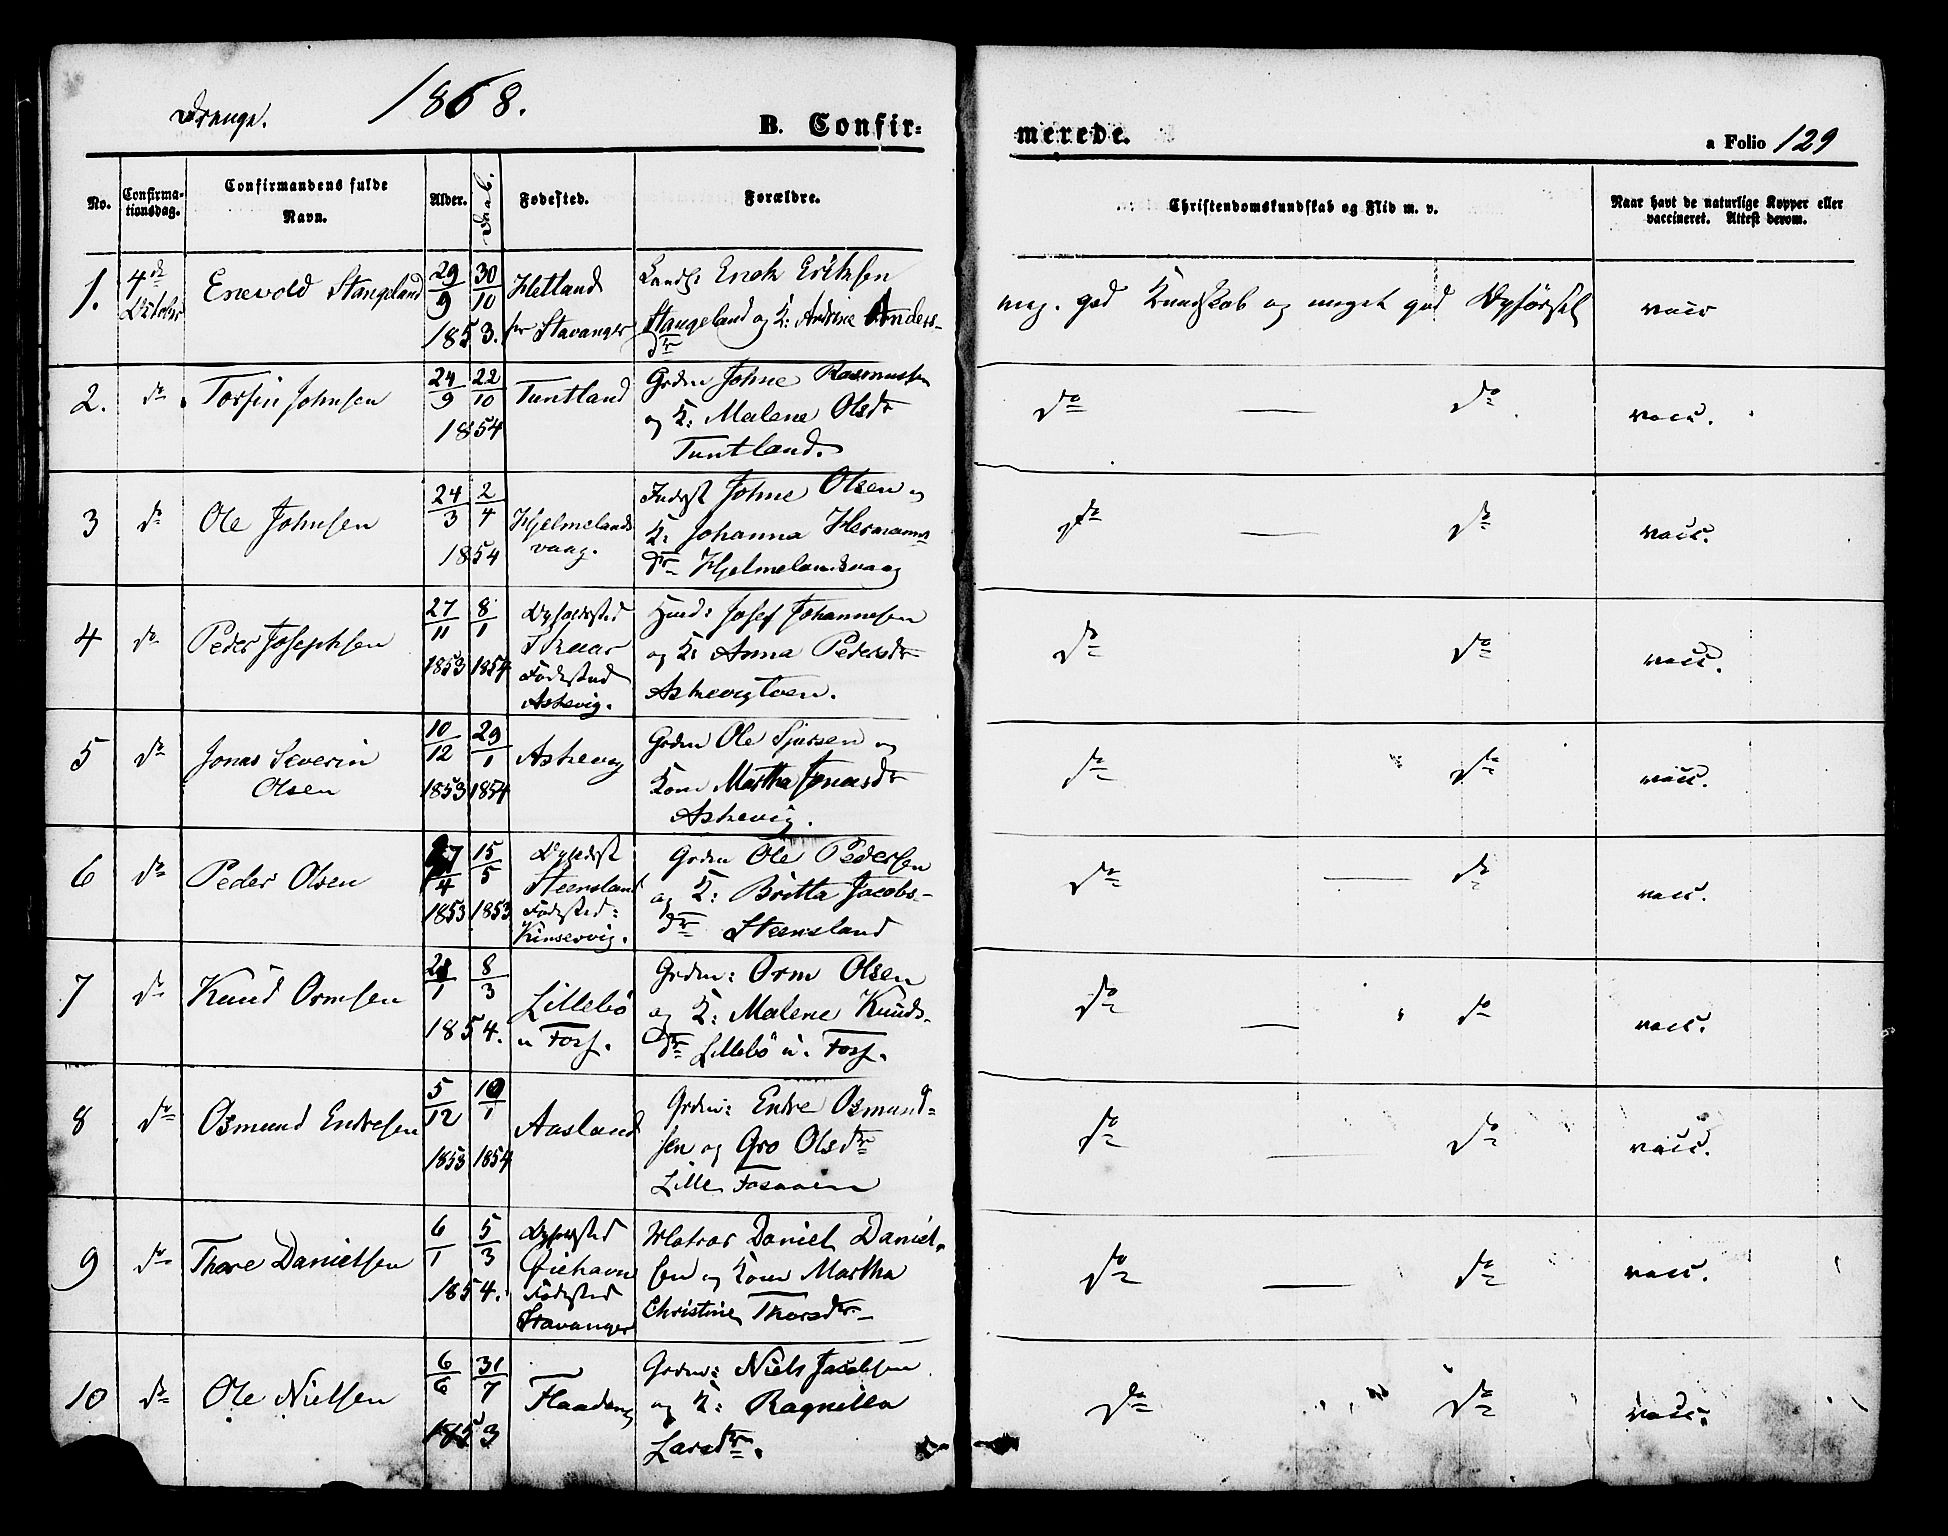 Drenge.
1868.
B. Confir-
merede.
a Folio 129
No.
Confirma-
tionsdag.
Confirmandens fulde
Navn.
Alder.
Daab.
Fødested.
Forældre.
Christendomskundskab og Flid m. v.
Naar havt de naturlige Kopper eller
vaccineret. Attest derom.
1. 4de October Enevold Stangeland 29/9 30/10 1853. Hetland
pr Stavanger
Enok Eriksen
Stangeland og K: Andrine Anders-
dtr
meg. god Kundskab og meget god Opførsel vacc
2. do Torfin Johnsen 24/9 22/10 1854 Tuntland
Grdm Johne Rasmussen
og K: Malene Olsdtr
Tuntland.
do — do. vacc.
3 do Ole Johnsen 24/3 2/4 1854 Hjelmelands
vaag.
Inderst Johne Olsen og
K: Johanna Hermanns
dtr Hjelmelandsvaag
do — do vacc.
4 do Peder Josephsen 27/11 1853 8/1 1854 Opholdssted
Skaar
Fødested
Askevig.
Huusm: Josef Johannesen
og K: Anna Pedersdtr
Askevigtoen.
do — do vacc.
5 do Jonas Severin
Olsen
10/12 1853 29/1 1854 Askevig
Grdm Ole Sjursen og
Kone Martha Jonasdtr
Askevig.
do " do vacc.
6 do Peder Olsen 27/4 1853 15/5 1853 Opholdsst
Steensland
Fødested:
Kinservig.
Grdm Ole Pedersen
og K: Britta Jacobs-
dtr Steensland
do — do vacc.
7 do Knud Ormsen 28/1 8/3 1854. Lillebö
u Fors.
Grdm: Orm Olsen
og K: Malene Knuds-
dtr Lillebö u. Fors.
do — do vacc.
8 do Osmund Endresen 5/12 1853 10/1 1854 Aasland
Grdm: Endre Osmund-
sen og Gro Olsdtr
Lille
do — do vacc.
9 do Thore Danielsen 6/1 5/3 1854. Opholdssted
Øiehavn
Fødested
Stavanger
Matros Daniel Daniel-
sen og Kone Martha
Christine Thorsdtr
do — do vacc.
10 do Ole Nielsen 6/6 31/7 1853
Grdm: Niels Jacobsen
og K: Ragnilla
Larsdtr.
do " do vacc.